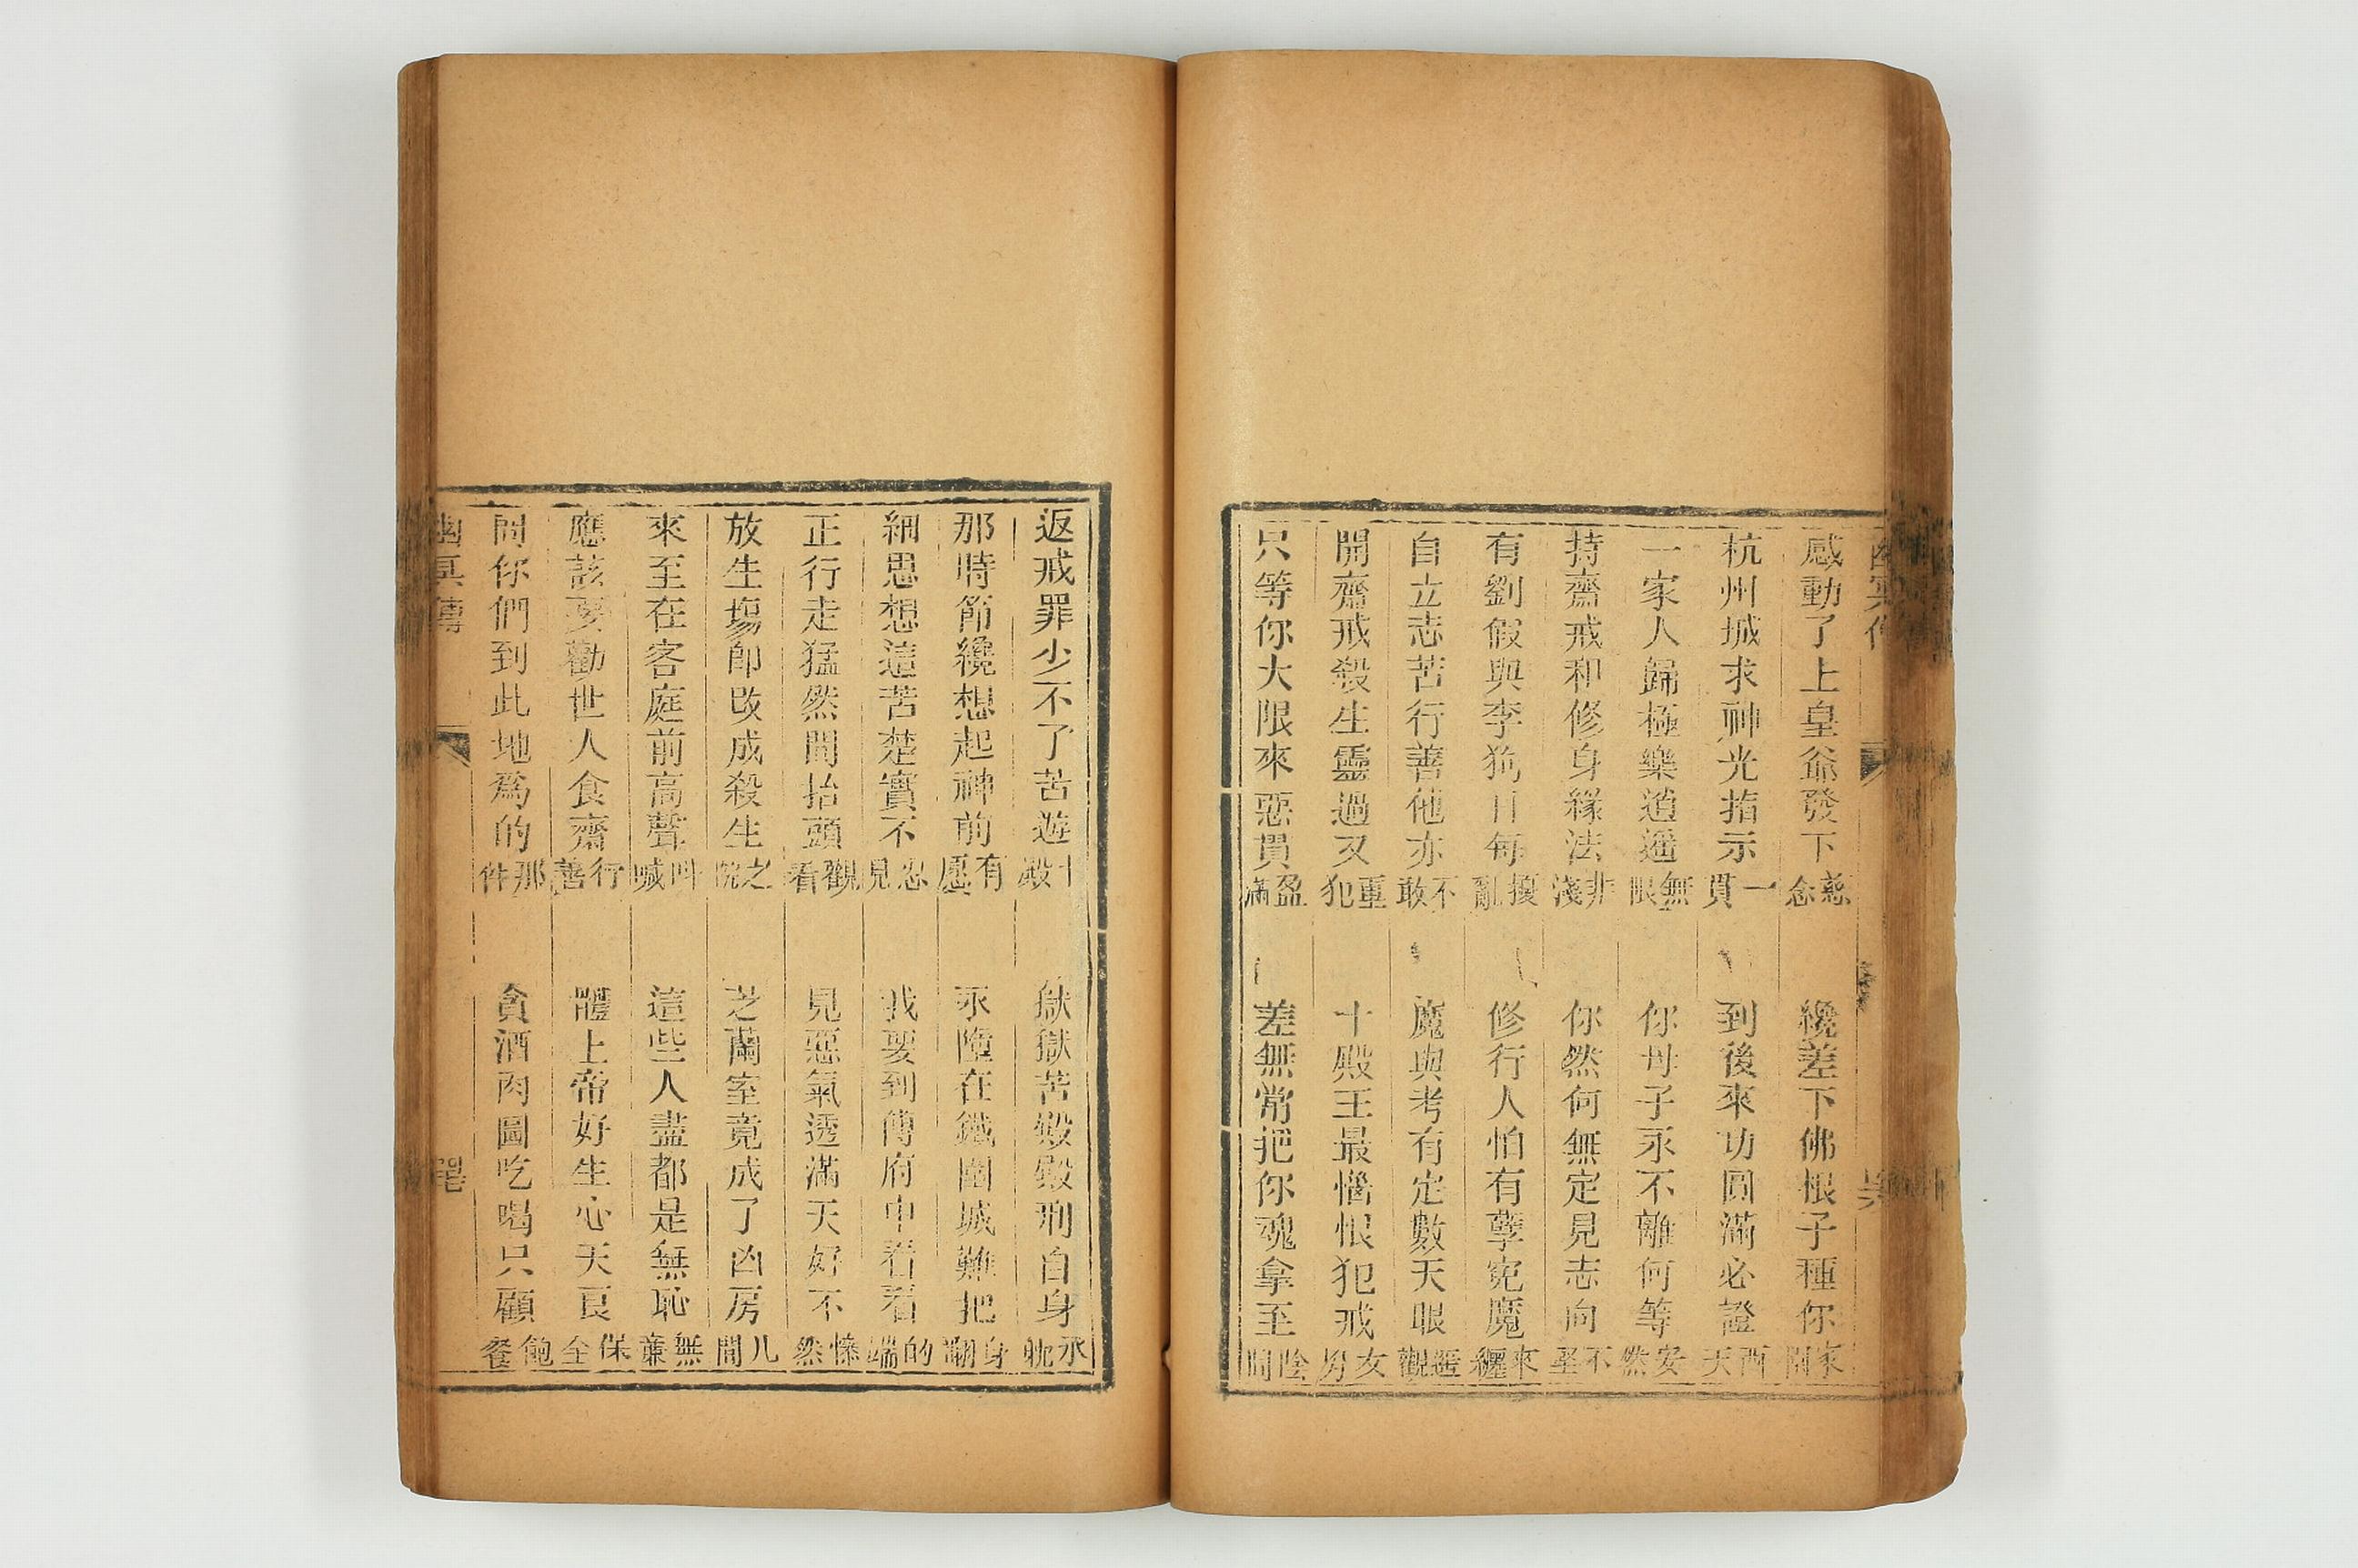 感動了上皇爺發下慈念 纔差下佛根子種你家門
杭州城求神光指示一貫 到後來功圓滿必證西天
一家人歸極樂逍遙無限 你母子永不離何等安然
持齋戒和修身緣法非淺 你然何無定見志向不堅
有劉假與李狗日每擾亂 修行人怕有孽寃魔來纏
自立志苦行善他亦不敢 魔與考有定數天眼遥觀
開齋戒殺生靈過又重犯 十殿王最惱恨犯戒女男
只等你大限來惡貫盈滿 差無常把你魂拿至陰間
返戒罪少不了苦遊十殿 獄獄苦殿殿刑自身承躭
那時節纔想起神前有愿 永墮在鐵圍城難把身翻
細思想這苦楚實不忍見 我要到傅府中看看的端
正行走猛然間抬頭觀看 見惡氣透滿天好不慘然
放生塲卽改成殺生之院 芝蘭室竟成了凶房几間
來至在客庭前高聲叫喊 這些人盡都是無恥無亷
應該要勸世人食齋行善 體上帝好生心天良保全
問你們到此地爲的那件 貪酒肉圖吃喝只顧飽餐
幽冥傳